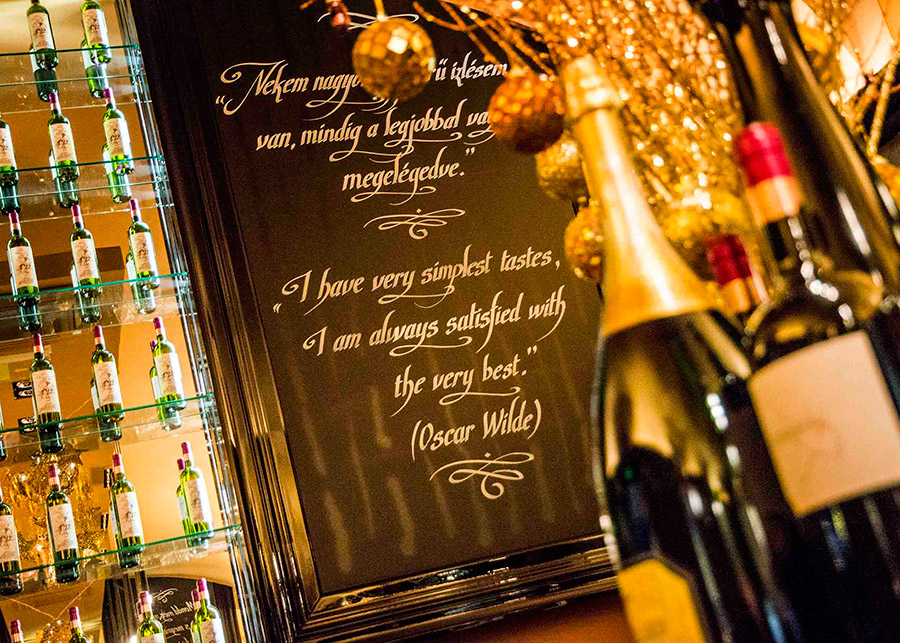 “Nekem ű izlésem
van, mindig a legjobbal
megelégedve.”
“I have very simplest tastes,
I am always satisfied with
the very best.”
(Oscar Wilde)